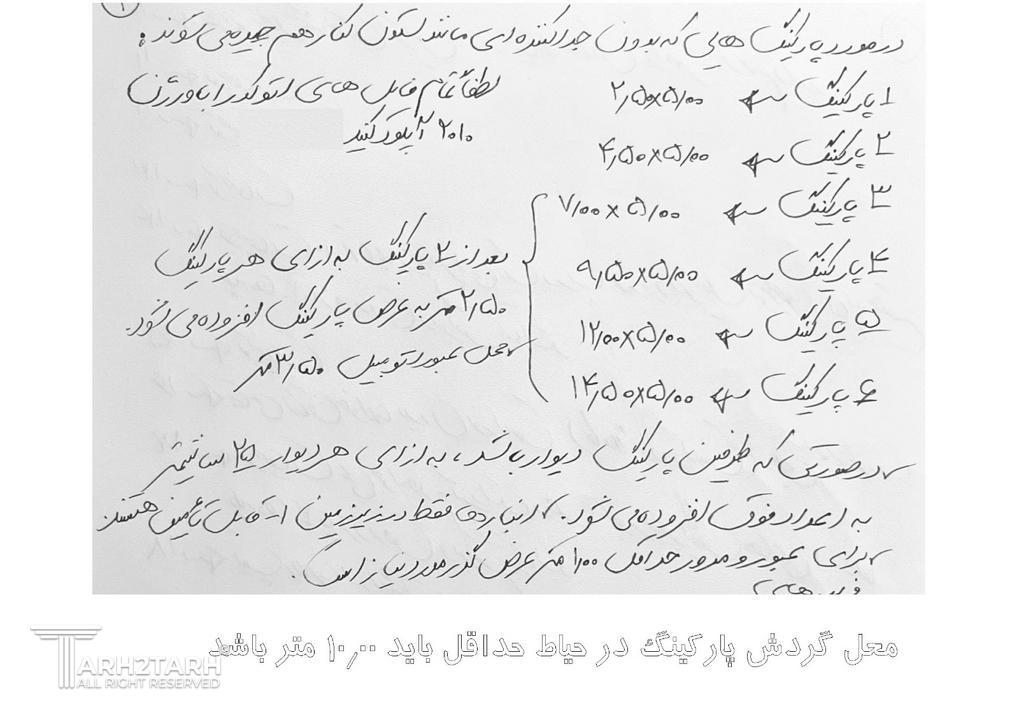 ۱
در مورد پارکینگ هایی که بدون جداکننده ای مانند ستون کنار هم چیده می شوند:
۱ پارکینگ ← ۲٫۵۰×۵٫۰۰
لطفاً تمام فایل های اتوکد را با ورژن
۲۰۱۰ آپلود کنید
۲ پارکینگ ← ۴٫۵۰×۵٫۰۰
۳ پارکینگ ← ۷٫۰۰×۵٫۰۰
۴ پارکینگ ← ۹٫۵۰×۵٫۰۰
۵ پارکینگ ← ۱۲٫۰۰×۵٫۰۰
۶ پارکینگ ← ۱۴٫۵۰×۵٫۰۰
بعد از ۲ پارکینگ به ازای هر پارکینگ
۲٫۵۰ متر به عرض پارکینگ افزوده می شود.
محل عبور اتوبیل ۳٫۵۰ متر
در صورتی که طرفین پارکینگ دیوار باشد، به ازای هر دیوار ۲۵ سانتیمتر
به اعداد فوق افزوده می شود. انباری ها فقط در زیرزمین قابل تأمین هستند
برای عبور و مرور حداقل ۱٫۰۰ متر عرض گذر مورد نیاز است.
محل گردش پارکینگ در حیاط حداقل باید ۱۰٫۰۰ متر باشد
TARH2TARH
ALL RIGHT RESERVED